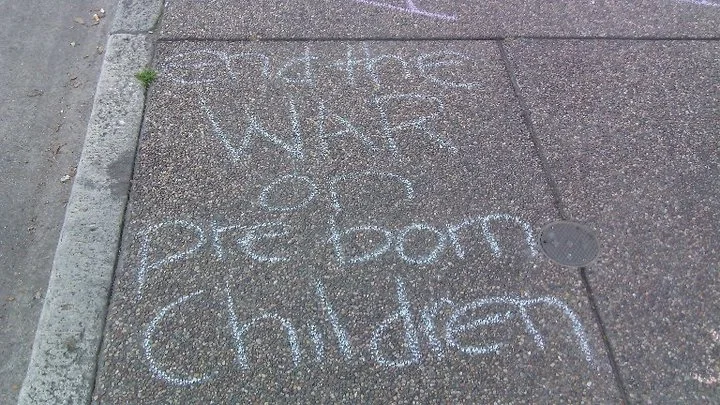 end the
WAR
on
pre born
Children